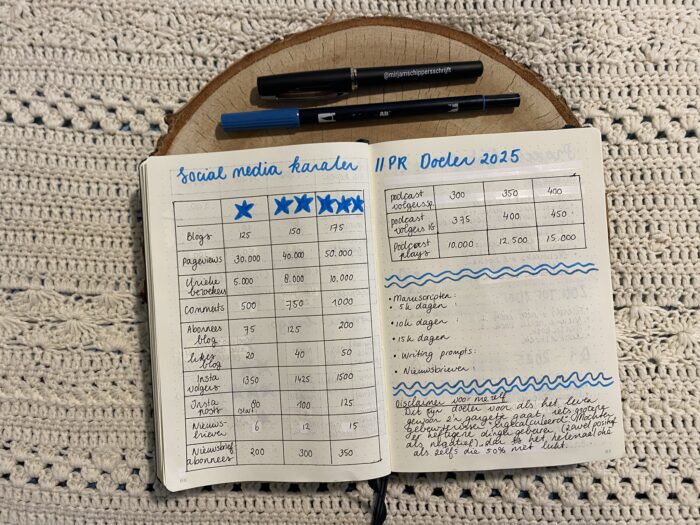 @mirjamschippersschrijft
AB
Social media kanalen || PR Doelen 2025
Blogs 125 150 175
Pageviews 30.000 40.000 50.000
Unieke bezoekers 5.000 8.000 10.000
Comments 500 750 1000
Abonnees blog 75 125 200
likes blog 20 40 50
Insta volgers 1350 1425 1500
Insta posts 80 100 125
Nieuws-brieven 6 12 15
Nieuwsbrief abonnees 200 300 350
podcast volgers 300 350 400
podcast volgers IG 375 400 450
Podcast plays 10.000 12.500 15.000
• Manuscripten:
• 5k dagen :
• 10k dagen :
• 15k dagen
• Writing prompts:
• Nieuwsbrieven:
Disclaimer voor mezelf
Dit zijn doelen voor als het leven
gewoon z'n gangetje gaat, iets
gebeurtenissen Mochten
er heftigere dingen gebeuren (zowel positief
als negatief), dan is het helemaal oké
als zelfs die 50% niet lukt.